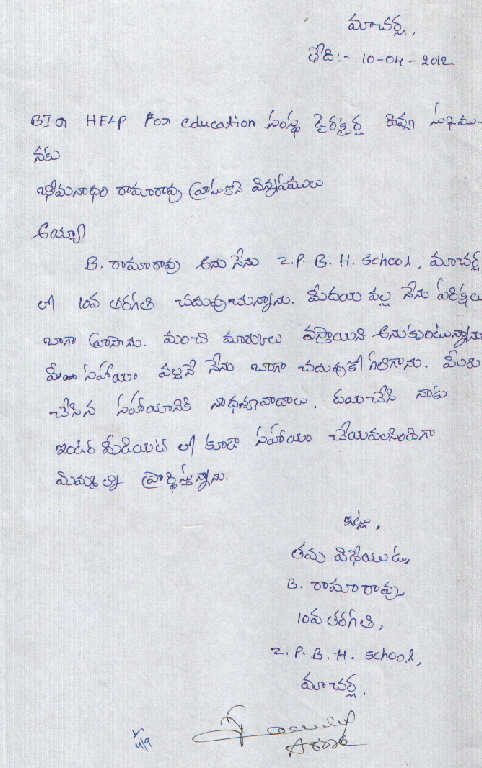 మాచర్ల,
తేది:- 10-04-2012
HELP For education సంస్థ డైరెక్టర్
నకు
రామారావు వ్రాసుకొనే విన్నపములు
అయ్యా
B. రామారావు అను నేను Z.P B. H. School, మాచర్ల
లో 10వ తరగతి చదువుచున్నాను. మీదయ వల్ల నేను పరీక్షలు
బాగా వ్రాసాను. మంచి మార్కులు వస్తాయని అనుకుంటున్నాను
మీయొ సహాయం వల్లనే నేను బాగా చదువుకో గలిగాను. మీరు
చేసిన సహాయానికి నాధన్యవాదాలు. దయచేసి నాకు
ఇంటర్ మీడియెట్ లో కూడా సహాయం చేయవలసిందిగా
మిమ్మల్ని ప్రార్ధిస్తున్నాను.
ఇట్లు,
తమ విధేయుడు,
B. రామారావు,
10వ తరగతి,
Z. P. B. H. School,
మాచర్ల.